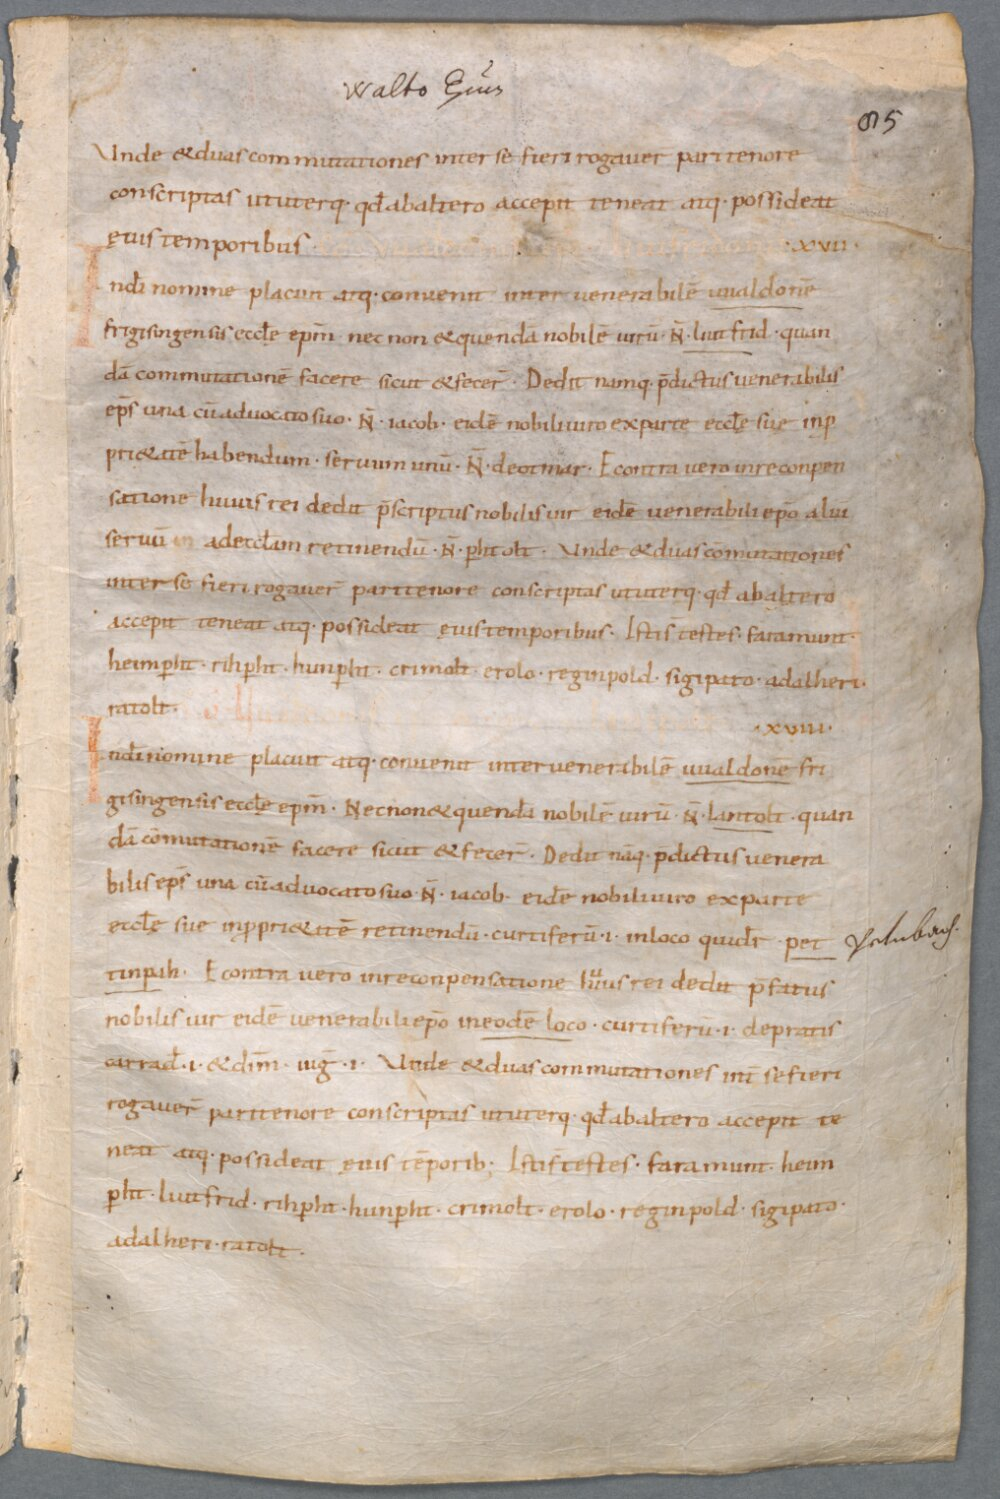 Walto Ep̄us
85
Unde &duas commutationes inter se fieri rogaver̄ pari tenore
conscriptas ut uterq· qđ ab altero accepit teneat atq· possideat
ęvis temporibus ·xvii·
In dī nomine placuit atq· convenit inter venerabilē uualdonē
frigisingensis eccłe ep̄m nec non & quendā nobilē virū· N̄· liutfrid· quan
dā commutationē facere sicut & fecer̄· Dedit namq· p̄dictus venerabilis
ep̄s una cū advocato suo· N̄· iacob· eidē nobili viro ex parte eccłę suę inp̱
pri&atē habendum· servum unū· N̄· deotmar· E contra vero in reconpen
satione huius rei dedit p̄scriptus nobilis vir eidē venerabili ep̄o aliū
servū in ad eccłam retinendū· N̄· p̱htolt· Unde & duas cōmutationes
inter se fieri rogaver̄ pari tenore conscriptas ut uterq· qđ ab altero
accepit teneat atq· possideat ęvis temporibus· Isti s̄ testes· faramunt·
heimp̱ht· rihp̱ht· hunp̱ht· crimolt· erolo· reginpold· sigipato· adalheri·
ratolt·
·xviii·
In dī nomine placuit atq· convenit inter venerabilē uualdonē fri
gisingensis eccłe ep̄m· Nec non & quendā nobilē virū· N̄· lantolt· quan
dā cōmutationē facere sicut & fecer̄· Dedit nāq· p̄dictus venera
bilis ep̄s una cū advocato suo· N̄· iacob· eidē nobili viro ex parte
eccłę suę inp̱pri&atē retinendū· curtiferū· i· in loco qui dr̄ pet
tinpah· E contra vero in reconpensatione huius rei dedit p̄fatus
nobilis vir eidē venerabili ep̄o in eodē loco· curtiferū· i· de pratis
carrađ· i· & dim̄· iug̃· i· Unde & duas commutationes int̄ se fieri
rogaver̄ pari tenore conscriptas ut uterq· qđ ab altero accepit te
neat atq· possideat ęvis tēporib; Isti s̄ testes· faramunt· heim
p̱ht· liutfrid· rihp̱ht· hunp̱ht· crimolt· erolo· reginpold· sigipato·
adalheri· ratolt·